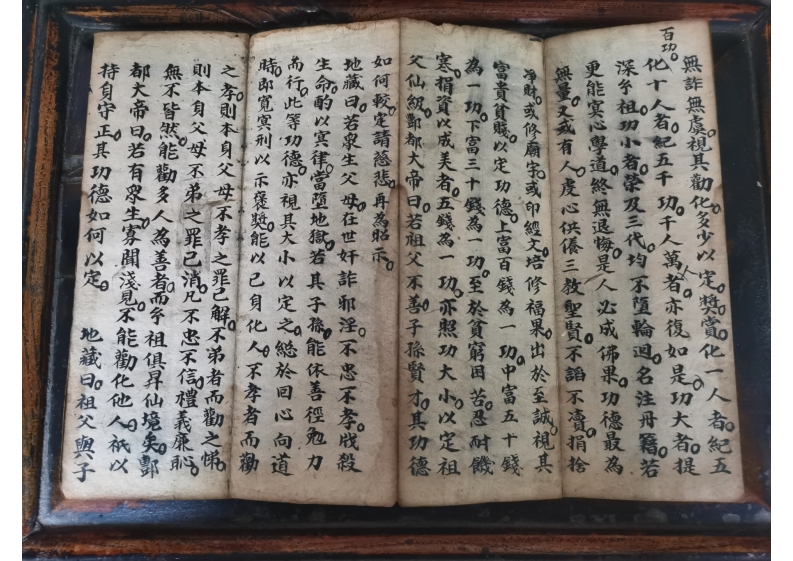 百功。
無詐無虞。視其勸化多少以定。獎賞。化一人者。紀五
化十人者。紀五千功。千人萬人者。亦復如是。功大者。提
深玄祖。功小者。榮及三代。均不墮輪迴。名注丹籍。若
更能冥心學道。終無退悔。是人必成佛果。功德最為
無量。又或有人。虔心供養三教聖賢。不諂不凟。捐捨
淨財。或修廟宇。或印經文。培修福果。出於至誠。視其
富貴貧賤。以定功德。上富百錢為一功。中富五十錢
為一功。下富三十錢為一功。至於貧窮困苦。忍耐饑
寒。捐資以成美者。五錢為一功。亦照功大小。以定祖
父仙級。酆都大帝曰。若祖父不善。子孫賢才。其功德
如何較定。請慈悲。再為昭示。
地藏曰。若眾生父母在世奸詐邪淫。不忠不孝。戕殺
生命。酌以冥律。當墮地獄。若其子孫。能依善徑勉力
而行。此等功德。亦視其大小以定之。總於回心向道
時。即寬冥刑以示褒獎。能以己身化人。不孝者而勸
之孝。則本身父母不孝之罪已解。不弟者而勸之悌。
則本身父母不弟之罪已消。凡不忠不信。禮義廉恥。
無不皆然。能勸多人為善者。而玄祖俱昇仙境矣。酆
都大帝曰。若有眾生寡聞淺見。不能勸化他人。祇以
持身守正。其功德如何以定。 地藏曰。祖父與子